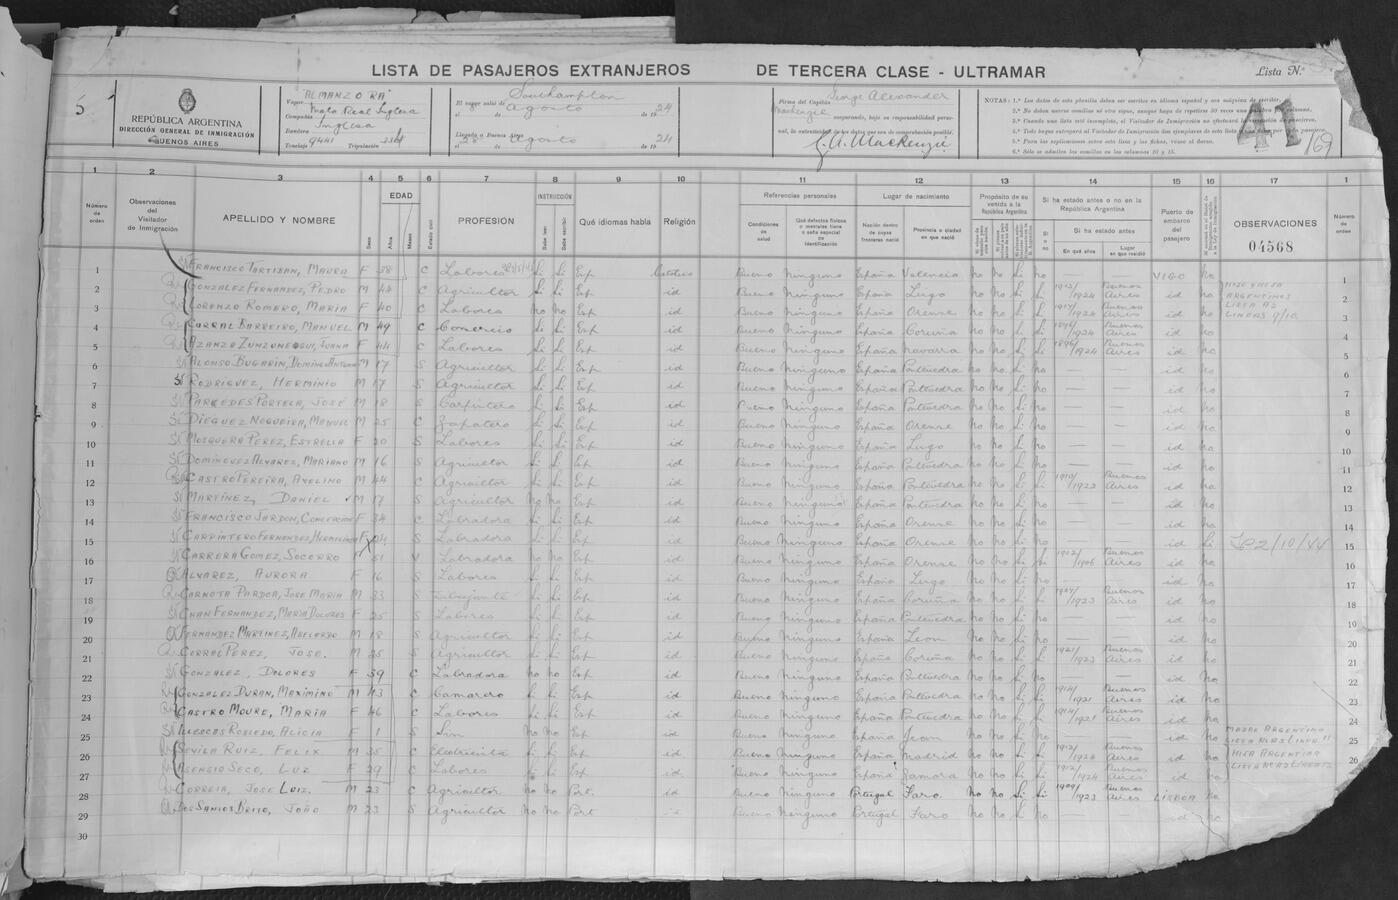 LISTA DE PASAJEROS EXTRANJEROS DE TERCERA CLASE - ULTRAMAR
Lista N.º
5
REPÚBLICA ARGENTINA
DIRECCIÓN GENERAL DE INMIGRACIÓN
BUENOS AIRES
Vapor "ALMANZORA"
Compañía Mala Real Inglesa
Bandera Inglesa
Tonelaje 9441 Tripulación
El vapor salió de Southampton
Agosto de 1924
Llegado a Buenos Aires
28 Agosto de 1924
Firma del Capitán George Alexander
Mackenzie asegurando, bajo su responsabilidad perso-
nal, la autenticidad de los datos que son de comprobación posible.
G. A. Mackenzie
NOTAS: 1.ª Los datos de esta planilla deben ser escritos en idioma español y con máquina de escribir.
3.ª Cuando una lista esté incompleta, el Visitador de Inmigración no efectuará
5.ª Para las explicaciones sobre esta lista y las fichas, véase al dorso.
6.ª Sólo se admiten las comillas en las columnas 10 y 15.
41
169
1 2 3 4 5 6 7 8 9 10 11 12 13 14 15 16 17 1
Número de orden
Observaciones del Visitador de Inmigración
APELLIDO Y NOMBRE
Sexo
EDAD
Años
Meses
Estado civil
PROFESION
INSTRUCCIÓN
Sabe leer
Sabe escribir
Qué idiomas habla
Religión
Referencias personales
Condiciones de salud
Qué defectos físicos o mentales tiene o seña especial de identificación
Lugar de nacimiento
Nación dentro de cuyas fronteras nació
Provincia o ciudad en que nació
Propósito de su venida a la República Argentina
Si ha estado antes o no en la República Argentina
Si o no
Si ha estado antes
En qué años
Lugar en que residió
Puerto de embarco del pasajero
OBSERVACIONES
04568
Número de orden
1 FRANCISCO TARTISAN, MAURA F 38 C Labores Si Si Esp Católico Bueno Ninguno España Valencia No No Si No — — VIGO No 1
2 GONZALEZ FERNANDEZ, PEDRO M 44 C Agricultor Si Si Esp id Bueno Ninguno España Lugo No No Si Si 1912/1924 Buenos Aires id No 2
3 LORENZO ROMERO, MARIA F 40 C Labores No No Esp id Bueno Ninguno España Orense No No Si Si Buenos Aires id No 3
4 CARRAL BARREIRO, MANUEL M 49 C Comercio Si Si Esp id Bueno Ninguno España Coruña No No Si Si Buenos Aires id No 4
5 AZANZA ZUNZUNEGUI, JUANA F 44 C Labores Si Si Esp id Bueno Ninguno España Navarra No No Si Si 1896/1924 Buenos Aires id No 5
6 ALONSO BUGARIN, DOMINGO ANTONIO M 17 S Agricultor Si Si Esp id Bueno Ninguno España Pontevedra No No Si No — — id No 6
7 RODRIGUEZ, HERMINIO M 17 S Agricultor Si Si Esp id Bueno Ninguno España Pontevedra No No Si No — — id No 7
8 PAREDES PORTELA, JOSÉ M 18 S Carpintero Si Si Esp id Bueno Ninguno España Pontevedra No No Si No — — id No 8
9 DIEGUEZ NOGUEIRA, MANUEL M 25 C Zapatero Si Si Esp id Bueno Ninguno España Orense No No Si No — — id No 9
10 MOSQUERA PEREZ, ESTRELLA F 20 S Labores Si Si Esp id Bueno Ninguno España Lugo No No Si No — — id No 10
11 DOMINGUEZ ALVAREZ, MARIANO M 16 S Agricultor Si Si Esp id Bueno Ninguno España Pontevedra No No Si No — — id No 11
12 CASTRO PEREIRA, AVELINO M 44 C Agricultor Si Si Esp id Bueno Ninguno España Pontevedra No No Si Si 1910/1923 Buenos Aires id No 12
13 MARTINEZ, DANIEL M 17 S Agricultor No No Esp id Bueno Ninguno España Pontevedra No No Si No — — id No 13
14 FRANCISCO JARDON, CONCEPCION F 34 C Labradora Si Si Esp id Bueno Ninguno España Orense No No Si No — — id No 14
15 CARPINTERO FERNANDEZ, HERMELINDA F 24 S Labradora Si Si Esp id Bueno Ninguno España Orense No No Si No — — id Si 2/10/44 15
16 CARRERA GOMEZ, SOCORRO F 51 V Labradora No No Esp id Bueno Ninguno España Orense No No Si Si 1902/1906 Buenos Aires id No 16
17 ALVAREZ, AURORA F 16 S Labores Si Si Esp id Bueno Ninguno España Lugo No No Si No — — id No 17
18 CARNOTA PARDOA, JOSE MARIA M 33 S Dibujante Si Si Esp id Bueno Ninguno España Coruña No No Si Si Buenos Aires id No 18
19 CHAN FERNANDEZ, MARIA DOLORES F 25 S Labores Si Si Esp id Bueno Ninguno España Pontevedra No No Si No — — id No 19
20 FERNANDEZ MARTINEZ, ABELARDO M 18 S Agricultor Si Si Esp id Bueno Ninguno España Leon No No Si No — — id No 20
21 CORRAL PEREZ, JOSE. M 25 S Agricultor Si Si Esp id Bueno Ninguno España Coruña No No Si Si 1921/1923 Buenos Aires id No 21
22 GONZALEZ, DOLORES F 39 C Labradora No No Esp id Bueno Ninguno España Pontevedra No No Si No — — id No 22
23 GONZALEZ DURAN, MAXIMINO M 43 C Camarero Si Si Esp id Bueno Ninguno España Pontevedra No No Si Si 1914/1921 Buenos Aires id No 23
24 CASTRO MOURE, MARIA F 46 C Labores Si Si Esp id Bueno Ninguno España Pontevedra No No Si Si 1914/1921 Buenos Aires id No 24
25 ILLESCAS ROBLEDO, ALICIA F 1 S Sin No No Esp id Bueno Ninguno España Jaen No No Si No — — id No 25
26 SEVILA RUIZ, FELIX M 35 C Electricista Si Si Esp id Bueno Ninguno España Madrid No No Si Si 1912/1924 Buenos Aires id No 26
27 ASENSIA SECO, LUZ F 29 C Labores Si Si Esp id Bueno Ninguno España Zamora No No Si Si 1912/1924 Buenos Aires id No
28 CORREIA, JOSE LUIZ. M 23 C Agricultor No No Port. id Bueno Ninguno Portugal Faro No No Si Si 1909/1923 Buenos Aires LISBOA No 28
29 DOS SANTOS BRITO, JOÃO M 23 S Agricultor No No Port id Bueno Ninguno Portugal Faro No No Si No — — id No 29
30
HIJO Y HIJA
ARGENTINOS
LISTA A2
LINEAS 9/10
MADRE ARGENTINA
HIJA ARGENTINA